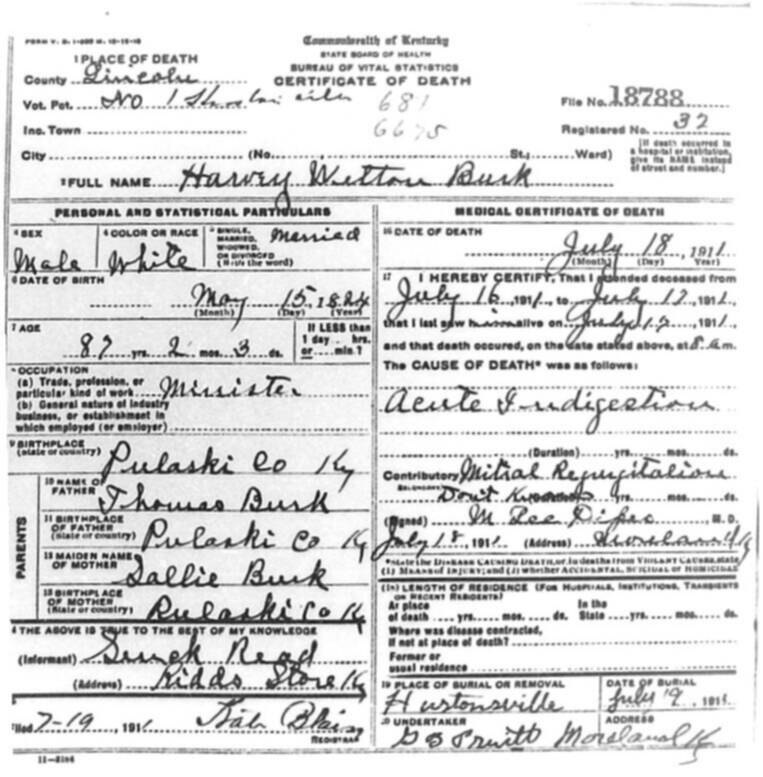 FORM V. S. 1-
Commonwealth of Kentucky
STATE BOARD OF HEALTH
BUREAU OF VITAL STATISTICS
CERTIFICATE OF DEATH
1 PLACE OF DEATH
County Lincoln
Vot. Pct. No 1
681
6675
File No. 18788
Inc. Town
Registered No. 32
City (No. St.; Ward)
[If death occurred in
a hospital or institution,
give its NAME instead
of street and number.]
2 FULL NAME Harvey Wetton Burk
PERSONAL AND STATISTICAL PARTICULARS
3 SEX
Male
4 COLOR OR RACE
White
5 SINGLE,
MARRIED,
WIDOWED,
OR DIVORCED
(Write the word)
Married
6 DATE OF BIRTH
May 15, 1824
(Month) (Day) (Year)
7 AGE
87 yrs. 2 mos. 3 ds.
If LESS than
1 day hrs.
or min.?
8 OCCUPATION
(a) Trade, profession, or
particular kind of work Minister
(b) General nature of industry
business, or establishment in
which employed (or employer)
9 BIRTHPLACE
(State or country)
Pulaski Co Ky
PARENTS
10 NAME OF
FATHER
Thomas Burk
11 BIRTHPLACE
OF FATHER
(State or country)
Pulaski Co Ky
12 MAIDEN NAME
OF MOTHER
Sallie Burk
13 BIRTHPLACE
OF MOTHER
(State or country)
Pulaski Co Ky
THE ABOVE IS TRUE TO THE BEST OF MY KNOWLEDGE
(Informant) Read
(Address) Kidds Store Ky
Filed 7-19, 1911
REGISTRAR
11-3184
MEDICAL CERTIFICATE OF DEATH
16 DATE OF DEATH
July 18, 1911
(Month) (Day) (Year)
17 I HEREBY CERTIFY, That I attended deceased from
July 16 1911 to July 17 1911
that I last saw him alive on July 17 1911
and that death occurred, on the date stated above, at 8 a m.
The CAUSE OF DEATH* was as follows:
Acute Indigestion
(Duration) yrs. mos. ds.
Contributory Mitral Regurgitation
Don't Know yrs. mos. ds.
(Signed) M. D.
July 18 1911 (Address) Moreland Ky
*State the DISEASE CAUSING DEATH, or, in deaths from VIOLENT CAUSES, state
(1) MEANS OF INJURY; and (2) whether ACCIDENTAL, SUICIDAL OR HOMICIDAL
LENGTH OF RESIDENCE (FOR HOSPITALS, INSTITUTIONS, TRANSIENTS
OR RECENT RESIDENTS)
At place
of death yrs. mos. ds.
In the
State yrs. mos. ds.
Where was disease contracted,
if not at place of death?
Former or
usual residence
19 PLACE OF BURIAL OR REMOVAL
Hustonsville
DATE OF BURIAL
July 19 1911
20 UNDERTAKER
G B Pruitt
ADDRESS
Moreland Ky